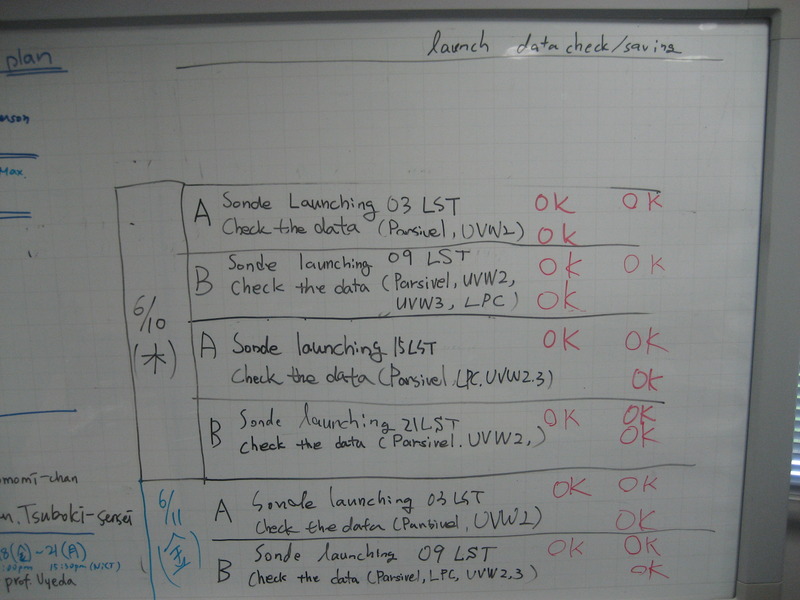 plan
launch data check/saving
Max.
A Sonde Launching 03 LST OK OK
Check the data (Parsivel, UVW2) OK
B Sonde launching 09 LST OK OK
Check the data (Parsivel, UVW2,
UVW3, LPC) OK
6/10
(木)
A Sonde launching 15LST OK OK
Check the data (Parsivel, LPC. UVW2.3) OK
B Sonde launching 21LST OK OK
Check the data (Parsivel. UVW2,) OK
omomi-chan
n. Tsuboki-sensei
8(金)~21(月)
:00pm 15:30pm (NiCT)
prof. Uyeda
6/11
(金)
A Sonde launching 03 LST OK OK
Check the data (Parsivel, UVW2) OK
B Sonde launching 09 LST OK OK
Check the data (Parsivel, LPC, UVW2.3) OK